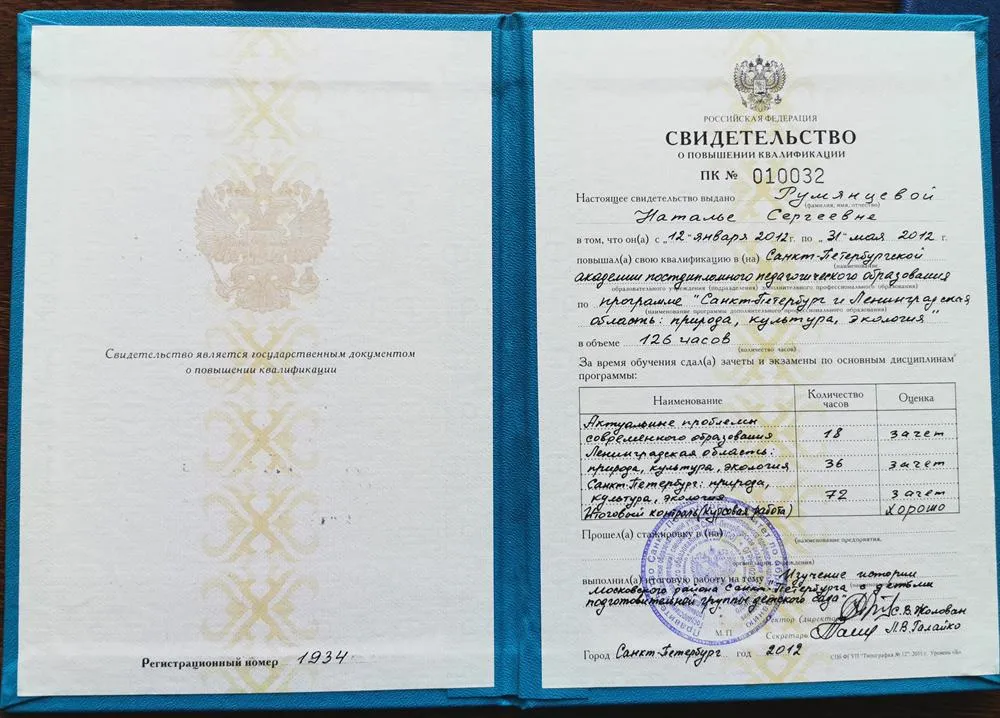 Свидетельство является государственным документом
о повышении квалификации
Регистрационный номер 1934
РОССИЙСКАЯ ФЕДЕРАЦИЯ
СВИДЕТЕЛЬСТВО
О ПОВЫШЕНИИ КВАЛИФИКАЦИИ
ПК № 010032
Настоящее свидетельство выдано Румянцевой
(фамилия, имя, отчество)
Наталье Сергеевне
в том, что он(а) с „12" января 2012 г. по „31" мая 2012 г.
повышал(а) свою квалификацию в (на) Санкт-Петербургской
(наименование
академии постдипломного педагогического образования
образовательного учреждения (подразделения) дополнительного профессионального образования)
по программе "Санкт-Петербург и Ленинградская
(наименование программы дополнительного профессионального образования)
область: природа, культура, экология"
в объеме 126 часов
(количество часов)
За время обучения сдал(а) зачеты и экзамены по основным дисциплинам
программы:
Наименование Количество часов Оценка
Актуальные проблемы
современного образования 18 зачет
Ленинградская область:
природа, культура, экология 36 зачет
Санкт-Петербург: природа,
культура, экология 72 зачет
Итоговый контроль (курсовая работа) хорошо
Прошел(а) стажировку в (на)
(наименование предприятия,
организации, учреждения)
выполнил(а) итоговую работу на тему "Изучение истории
Московского района Санкт-Петербурга с детьми
подготовительной группы детского сада"
Ректор (директор) С.В.Жолован
М.П.
Секретарь Л.В.Галайко
Город Санкт-Петербург год 2012
СПб ФГУП "Типография № 12" 2011 г. Уровень «Б»